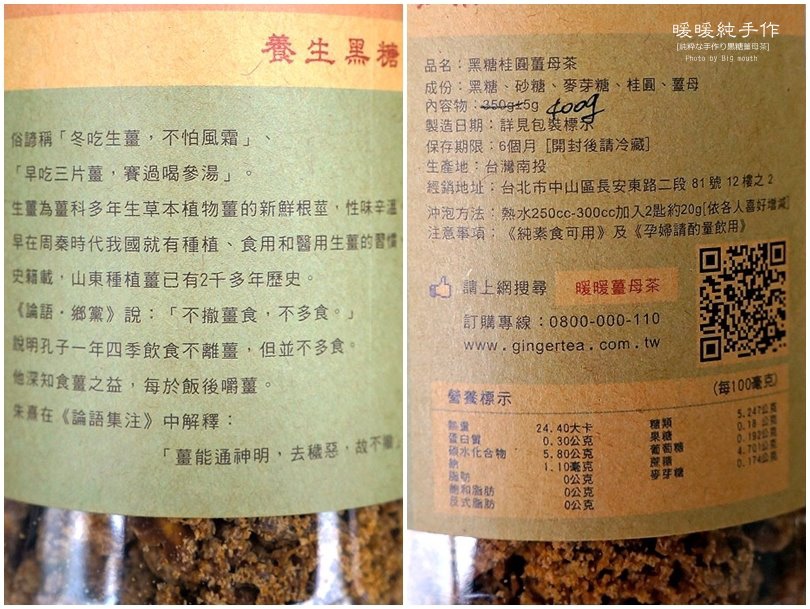 養生黑糖
俗諺稱「冬吃生薑，不怕風霜」、
「早吃三片薑，賽過喝參湯」。
生薑為薑科多年生草本植物薑的新鮮根莖，性味辛溫，
早在周秦時代我國就有種植、食用和醫用生薑的習慣，
史籍載，山東種植薑已有2千多年歷史。
《論語·鄉黨》說：「不撤薑食，不多食。」
說明孔子一年四季飲食不離薑，但並不多食。
他深知食薑之益，每於飯後嚼薑。
朱熹在《論語集注》中解釋：
「薑能通神明，去穢惡，故不撤」
暖暖純手作
[純粋な手作り黑糖薑母茶]
Photo by Big mouth
品名：黑糖桂圓薑母茶
成份：黑糖、砂糖、麥芽糖、桂圓、薑母
內容物：350g±5g 400g
製造日期：詳見包裝標示
保存期限：6個月 [開封後請冷藏]
生產地：台灣南投
經銷地址：台北市中山區長安東路二段 81 號 12 樓之 2
沖泡方法：熱水250cc-300cc加入2匙約20g[依各人喜好增減]
注意事項：《純素食可用》及《孕婦請酌量飲用》
請上網搜尋 暖暖薑母茶
訂購專線：0800-000-110
www.gingertea.com.tw
營養標示 (每100毫克)
熱量 24.40大卡 糖類 5.247公克
蛋白質 0.30公克 果糖 0.18 公克
碳水化合物 5.80公克 葡萄糖 0.192公克
鈉 1.10毫克 蔗糖 4.701公克
脂肪 0公克 麥芽糖 0.174公克
飽和脂肪 0公克
反式脂肪 0公克